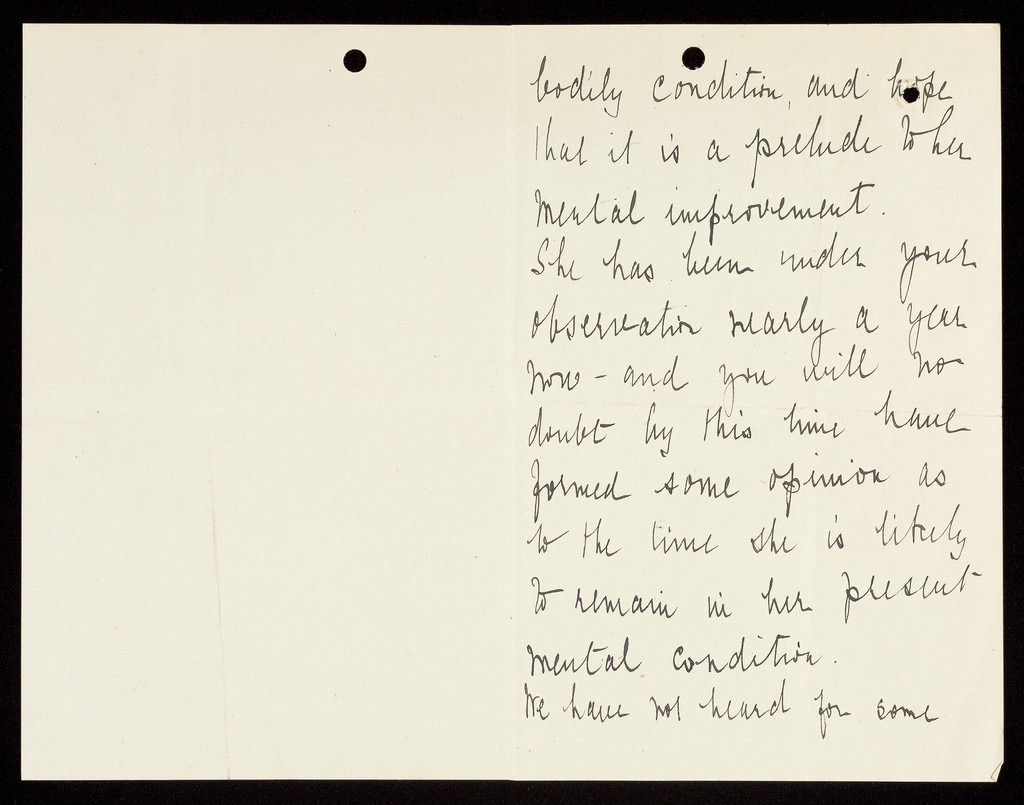 bodily condition, and hope
that it is a prelude to her
mental improvement.
She has been under your
observation nearly a year
now - and you will no
doubt by this time have
formed some opinion as
to the time she is likely
to remain in her present
mental condition.
We have not heard for some